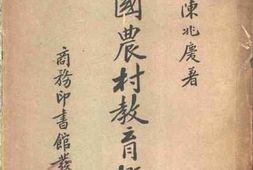 陳兆慶著
國農村教育概
商務印書館發